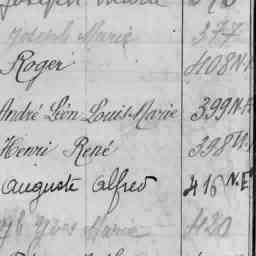 Joseph Marie 377
Roger 408 N.E
André Léon Louis Marie 399 N.E
Henri René 398 N.E
Auguste Alfred 416 N.E
Yves Marie 420